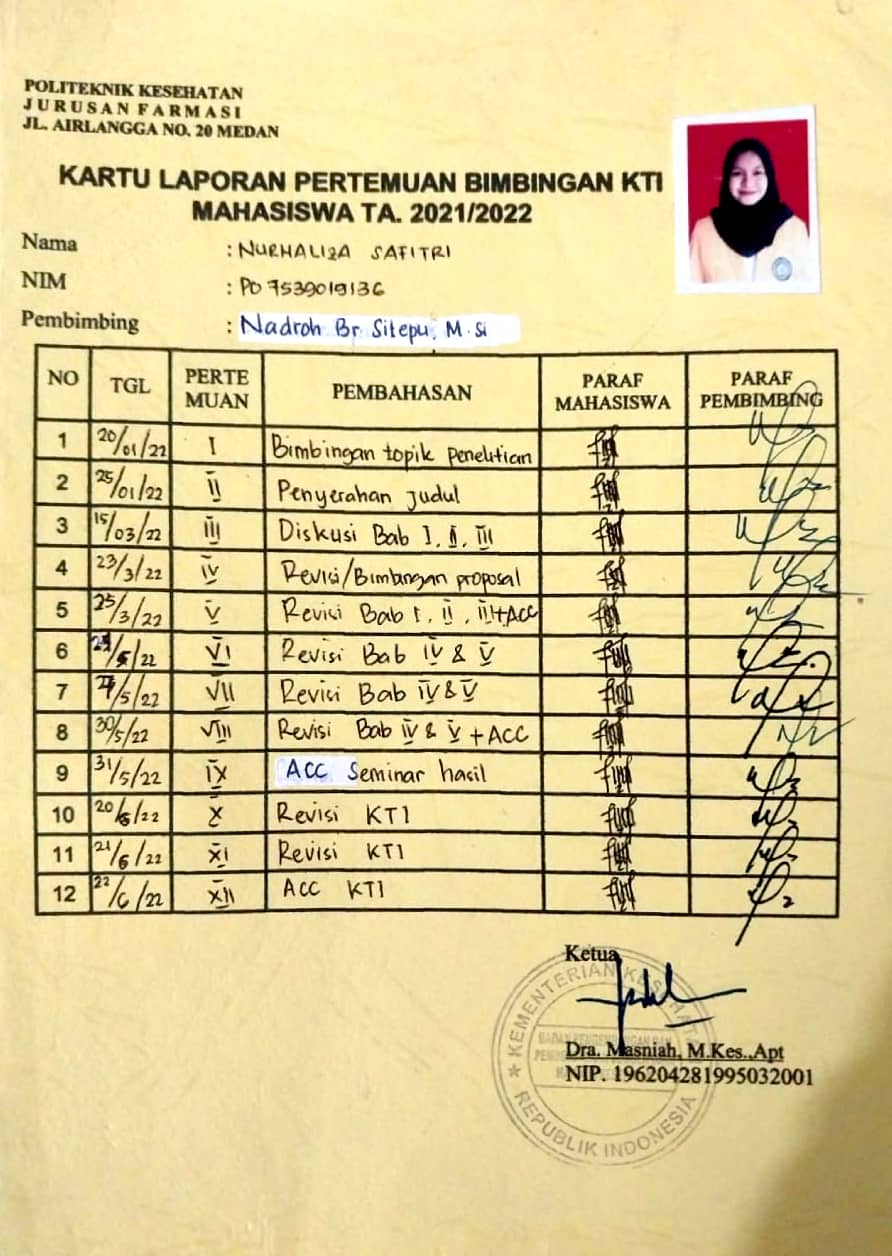 POLITEKNIK KESEHATAN
JURUSAN FARMASI
JL. AIRLANGGA NO. 20 MEDAN
KARTU LAPORAN PERTEMUAN BIMBINGAN KTI
MAHASISWA TA. 2021/2022
Nama : NURHALIZA SAFITRI
NIM : PO7539019136
Pembimbing : Nadroh Br Sitepu, M.Si
NO TGL PERTE MUAN PEMBAHASAN PARAF MAHASISWA PARAF PEMBIMBING
1 20/01/22 I Bimbingan topik penelitian
2 25/01/22 II Penyerahan judul
3 15/03/22 III Diskusi Bab I, II, III
4 23/3/22 IV Revisi/Bimbingan proposal
5 25/3/22 V Revisi Bab I, II, III+ACC
6 /5/22 VI Revisi Bab IV & V
7 27/5/22 VII Revisi Bab IV & V
8 30/5/22 VIII Revisi Bab IV & V + ACC
9 31/5/22 IX ACC Seminar hasil
10 20/6/22 X Revisi KTI
11 21/6/22 XI Revisi KTI
12 22/6/22 XII ACC KTI
Ketua
KEMENTERIAN KESEHATAN
Dra. Masniah, M.Kes.,Apt
NIP. 196204281995032001
REPUBLIK INDONESIA